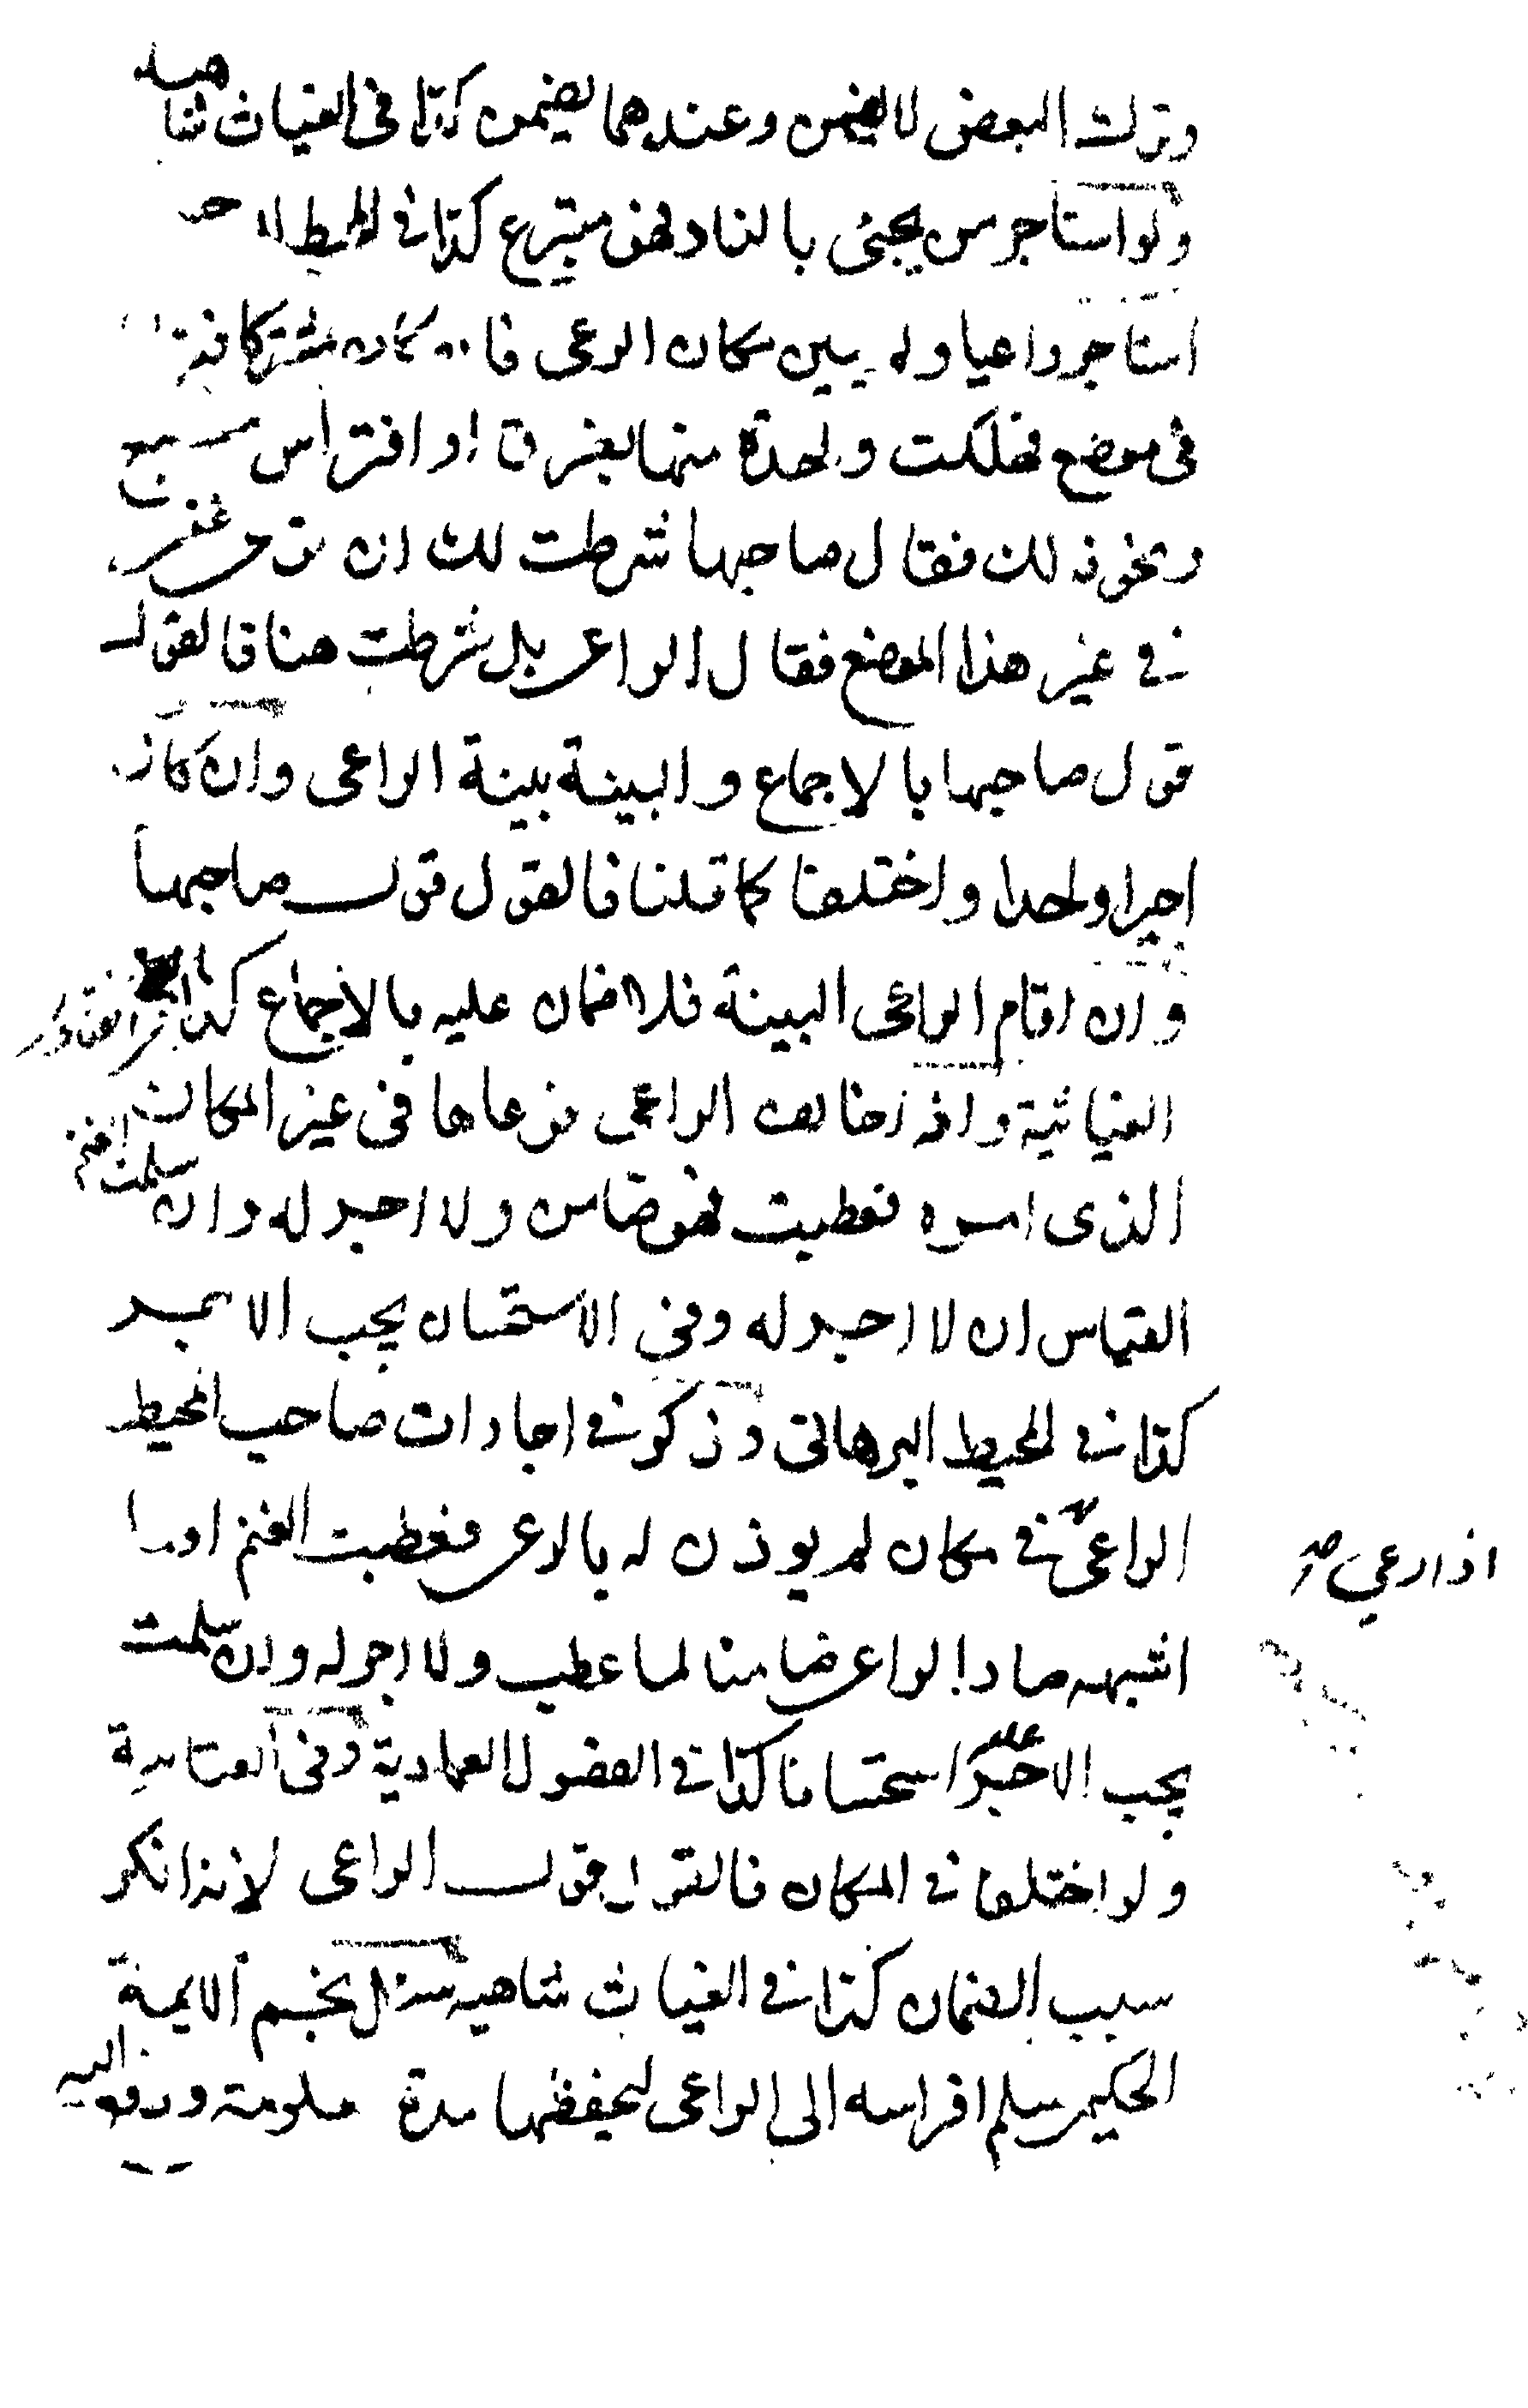 وترك البعض لا يضمن وعندهما يضمن كذا في الغياث شاهيه
ولو استاجر من يجئ بالناد فهو متبرع كذا في المحيط
استاجر راعيا ولم يبين مكان الرعى فان كان مشتركا
في موضع فهلكت واحدة منها بغرق او افتراس سبع
ونحو ذلك فقال صاحبها شرطت لك ان ترعى غنمي
في غير هذا الموضع فقال الراعى بل شرطت هنا فالقول
قول صاحبها بالاجماع والبينة بينة الراعى وان كان
اجيرا واحدا واختلفا كما قلنا فالقول قول صاحبها
وان اقام الراعى البينة فلا ضمان عليه بالاجماع كذا في الفتاوى
الغياثية واذا خالف الراعى فرعاها في غير المكان
الذى امره فعطبت فهو ضامن ولا اجر له وان سلمت الغنم
القياس ان لا اجر له وفي الاستحسان يجب الاجر
كذا في المحيط البرهانى وذكر في اجارات صاحب المحيط
الراعى في مكان لم يوذن له بالرعى فعطبت الغنم او ما
اذا رعى صح
اشبهه صار الراعى ضامنا لما عطب ولا اجر له وان سلمت
يجب الاجر عليه استحسانا كذا في الفصول العمادية وفي العتابية
ولو اختلفا في المكان فالقول قول الراعى لانه انكر
سبب الضمان كذا في الغياث شاهيه سئل نجم الايمة
الحكيمي سلم افراسه الى الراعى ليحفظها مدة معلومة ودفع اليه